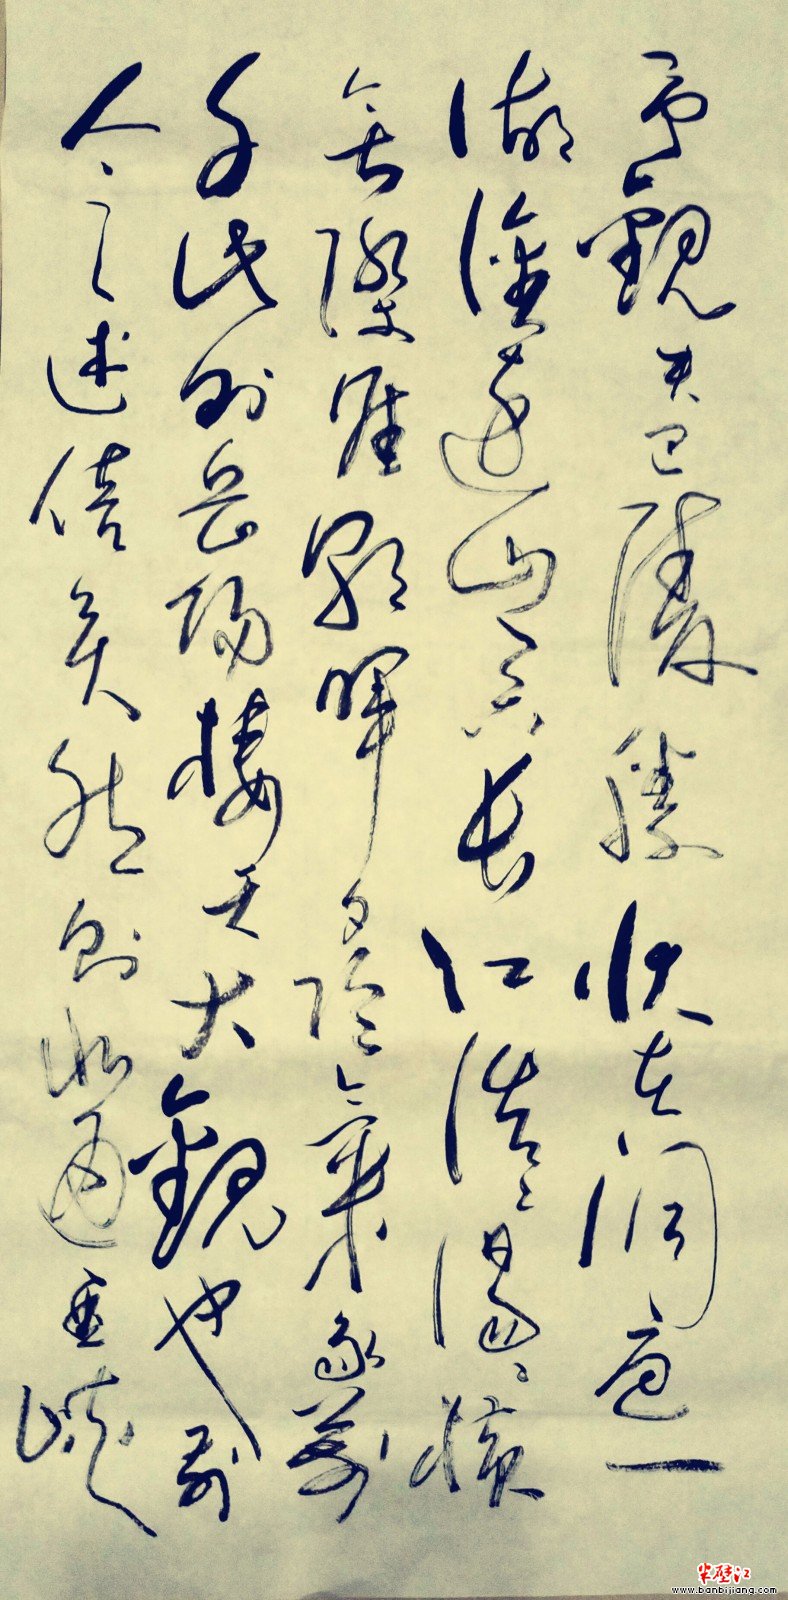 予觀夫巴陵勝狀在洞庭一
湖銜遠山吞长江浩浩湯湯橫
無際涯朝暉夕陰氣象萬
千此則岳陽樓之大觀也前
人之述備矣然則北通巫峽
半壁江
www.banbijiang.com